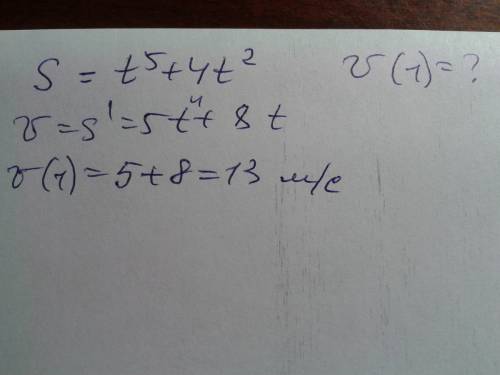 S = t⁵+4t² υ(1)=?
υ=s'=5t⁴+8t
υ(1)=5+8=13 м/с